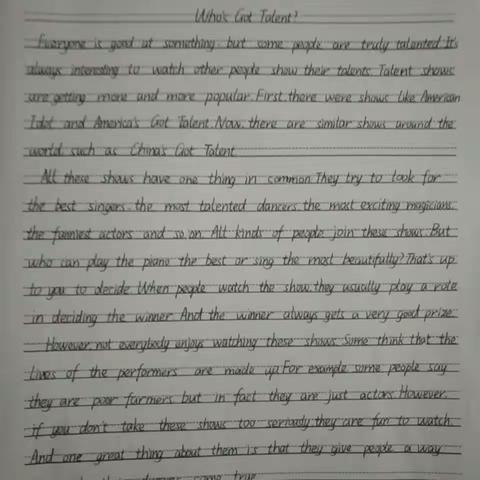 Who's Got Talent?
Everyone is good at something. but some people are truly talented. It's
always interesting to watch other people show their talents. Talent shows
are getting more and more popular. First. there were shows like American
Idol and America's Got Talent. Now. there are similar shows around the
world. such as China's Got Talent
All these shows have one thing in common. They try to look for
the best singers. the most talented dancers. the most exciting magicians.
the funniest actors and so on. All kinds of people join these shows. But
who can play the piano the best or sing the most beautifully? That's up
to you to decide. When people watch the show. they usually play a role
in deciding the winner. And the winner always gets a very good prize.
However. not everybody enjoys watching these shows. Some think that the
lives of the performers are made up. For example. some people say
they are poor farmers. but in fact they are just actors. However.
if you don't take these shows too seriously. they are fun to watch.
And one great thing about them is that they give people a way
come true